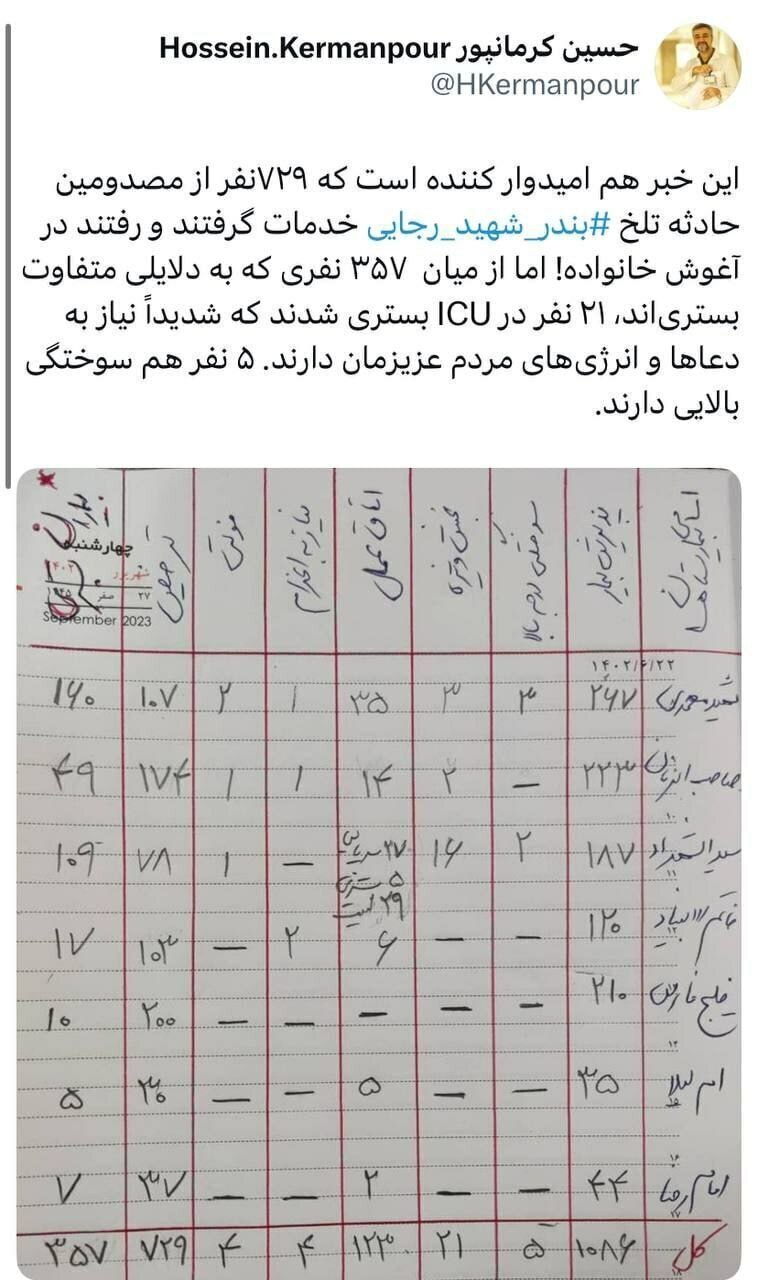 حسین کرمانپور Hossein.Kermanpour
@HKermanpour
این خبر هم امیدوار کننده است که ۷۲۹نفر از مصدومین
حادثه تلخ #بندر_شهید_رجایی خدمات گرفتند و رفتند در
آغوش خانواده! اما از میان ۳۵۷ نفری که به دلایلی متفاوت
بستری‌اند، ۲۱ نفر در ICU بستری شدند که شدیداً نیاز به
دعاها و انرژی‌های مردم عزیزمان دارند. ۵ نفر هم سوختگی
بالایی دارند.
اسامی بیمارستان‌ها پذیرش بیمار سوختگی درجه بالا بخش ویژه اتاق عمل نیاز به اعزام فوتی ترخیص
چهارشنبه
شهریور ۱۴۰۲
۲۷ صفر ۱۴۴۵
September 2023
۱۴۰۲/۶/۲۲
شهید محمدی ۲۶۷ ۳ ۳ ۳۵ ۱ ۲ ۱۰۷ ۱۶۰
صاحب الزمان ۲۲۳ — ۲ ۱۴ ۱ ۱ ۱۷۴ ۴۹
سید الشهداء ۱۸۷ ۲ ۱۶ — ۱ ۷۸ ۱۰۹
خاتم الانبیاء ۱۲۰ — — ۶ ۲ — ۱۰۳ ۱۷
خلیج فارس ۲۱۰ — — — — — ۲۰۰ ۱۰
ام لیلا ۳۵ — — ۵ — — ۳۰ ۵
امام رضا ۴۴ — — ۲ — — ۳۷ ۷
کل ۱۰۸۶ ۵ ۲۱ ۱۲۳ ۴ ۴ ۷۲۹ ۳۵۷